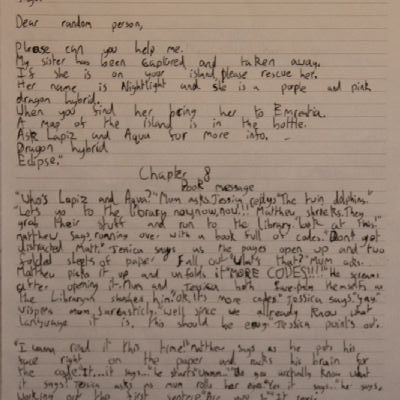 Dear random person,
Please can you help me.
My sister has been captured and taken away.
If she is on your island, please rescue her.
Her name is Nightlight and she is a purple and pink
dragon hybrid.
When you find her bring her to
A map of the island is in the bottle.
Ask Lapiz and Aqua for more info.
Dragon hybrid
Eclipse."
Chapter 8
Book message
"Who's Lapiz and Aqua?" Mum asks. Jessica replys "The twin dolphins."
"Let's go to the library now,now,now!!!" Matthew shreaks. They
grab their stuff and run to the library. "Look at this!"
matthew says, running over with a book full of codes. "Don't get
distracted Matt." Jessica says as the pages open up and two
folded sheets of paper fall out. "What's that?" Mum asks.
Matthew picks it up and unfolds it "MORE CODES!!!!" He screams
after opening it. Mum and Jessica both face-palm themselfs as
the Libraryan shushes him. "Ok. It's more codes." Jessica says. "Yay."
wispers mum, sarcasticly. "Well since we already know what
Language it is, this should be easy." Jessica points out.
"I wanna read it this time!" Matthew says as he puts his
face right on the paper and racks his brain for
the code. "It...it says..." he starts "Umm..." "Do you acctually know what
it says?" Jessica asks as mum rolls her eyes. "Yes it says.." he says,
working out the first sentence